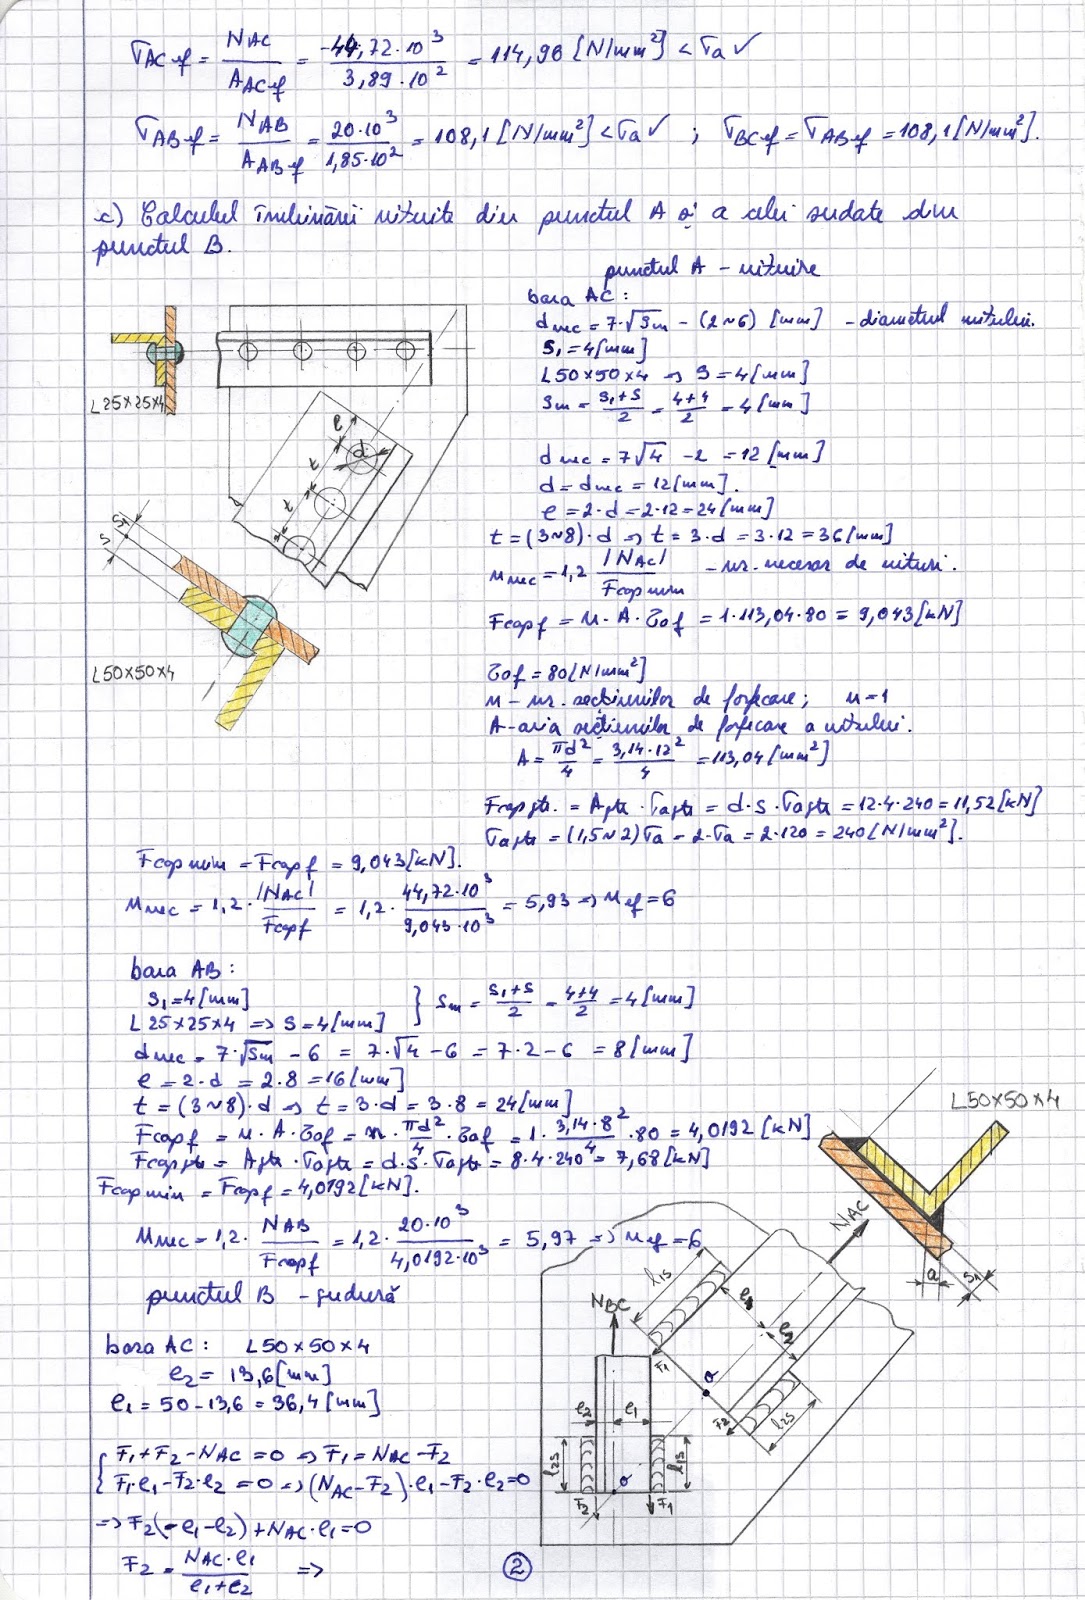 σAC ef = NAC / AAC ef = -44,72·10³ / 3,89·10² = 114,96 [N/mm²] < σa ✓
σAB ef = NAB / AAB ef = 20·10³ / 1,85·10² = 108,1 [N/mm²] < σa ✓ ; σBC ef = σAB ef = 108,1 [N/mm²].
c) Calculul îmbinării nituite din punctul A și a celei sudate din
punctul B.
punctul A – nituire
bara AC:
dnec = 7·√sm – (2~6) [mm] – diametrul nitului.
s₁ = 4 [mm]
L50×50×4 ⇒ s = 4 [mm]
sm = (s₁+s)/2 = (4+4)/2 = 4 [mm]
L25×25×4
e
t
d
t
dnec = 7√4 – 2 = 12 [mm]
d = dnec = 12 [mm].
e = 2·d = 2·12 = 24 [mm]
t = (3~8)·d ⇒ t = 3·d = 3·12 = 36 [mm]
nnec = 1,2 |NAC| / Fcap min – nr. necesar de nituri.
Fcap f = n·A·τaf = 1·113,04·80 = 9,043 [kN]
s₁
s
L50×50×4
τaf = 80 [N/mm²]
n – nr. secțiunilor de forfecare; n = 1
A – aria secțiunilor de forfecare a nitului.
A = πd²/4 = 3,14·12²/4 = 113,04 [mm²]
Fcap str. = Astr · σastr = d·s·σastr = 12·4·240 = 11,52 [kN]
σastr = (1,5~2)σa = 2·σa = 2·120 = 240 [N/mm²].
Fcap min = Fcap f = 9,043 [kN].
nnec = 1,2 · |NAC| / Fcap f = 1,2 · 44,72·10³ / 9,043·10³ = 5,93 ⇒ nef = 6
bara AB:
s₁ = 4 [mm]
L25×25×4 ⇒ s = 4 [mm] } sm = (s₁+s)/2 = (4+4)/2 = 4 [mm]
dnec = 7·√sm – 6 = 7·√4 – 6 = 7·2 – 6 = 8 [mm]
e = 2·d = 2·8 = 16 [mm]
t = (3~8)·d ⇒ t = 3·d = 3·8 = 24 [mm]
Fcap f = n·A·τaf = n · πd²/4 · τaf = 1 · 3,14·8²/4 · 80 = 4,0192 [kN]
Fcap str = Astr · σastr = d·s·σastr = 8·4·240 = 7,68 [kN]
Fcap min = Fcap f = 4,0192 [kN].
nnec = 1,2 · NAB / Fcap f = 1,2 · 20·10³ / 4,0192·10³ = 5,97 ⇒ nef = 6
L50×50×4
NAC
a
s₁
punctul B – sudură
bara AC: L50×50×4
e₂ = 13,6 [mm]
e₁ = 50 – 13,6 = 36,4 [mm]
{ F₁+F₂–NAC = 0 ⇒ F₁ = NAC–F₂
F₁·e₁–F₂·e₂ = 0 ⇒ (NAC–F₂)·e₁–F₂·e₂ = 0
⇒ F₂(–e₁–e₂)+NAC·e₁ = 0
F₂ = NAC·e₁ / e₁+e₂ ⇒
NBC
l1s
e₁
e₂
F₁
O
F₂
l2s
e₂
e₁
l2s
l1s
O
F₂
F₁
2